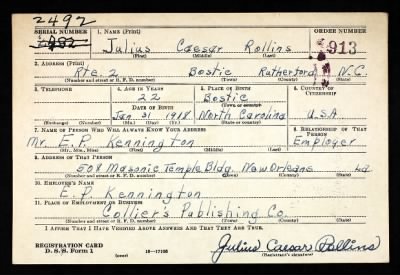 2492
SERIAL NUMBER 1. NAME (Print) ORDER NUMBER
Julius Caesar Rollins 913
(First) (Middle) (Last)
2. ADDRESS (Print)
Rte. 2 Bostic Rutherford N.C.
(Number and street or R. F. D. number) (Town) (County) (State)
3. TELEPHONE 4. AGE IN YEARS 5. PLACE OF BIRTH 6. COUNTRY OF CITIZENSHIP
22 Bostic
DATE OF BIRTH (Town or county)
Jan 31 1918 North Carolina U.S.A
(Exchange) (Number) (Mo.) (Day) (Yr.) (State or country)
7. NAME OF PERSON WHO WILL ALWAYS KNOW YOUR ADDRESS 8. RELATIONSHIP OF THAT PERSON
Mr. E. P. Kennington Employer
(Mr., Mrs., Miss) (First) (Middle) (Last)
9. ADDRESS OF THAT PERSON
508 Masonic Temple Bldg. New Orleans La
(Number and street or R. F. D. number) (Town) (County) (State)
10. EMPLOYER'S NAME
E. P. Kennington
11. PLACE OF EMPLOYMENT OR BUSINESS
Collier's Publishing Co.
(Number and street or R. F. D. number) (Town) (County) (State)
I AFFIRM THAT I HAVE VERIFIED ABOVE ANSWERS AND THAT THEY ARE TRUE.
REGISTRATION CARD
D. S. S. Form 1 (over) 16-17105 Julius Caesar Rollins
(Registrant's signature)